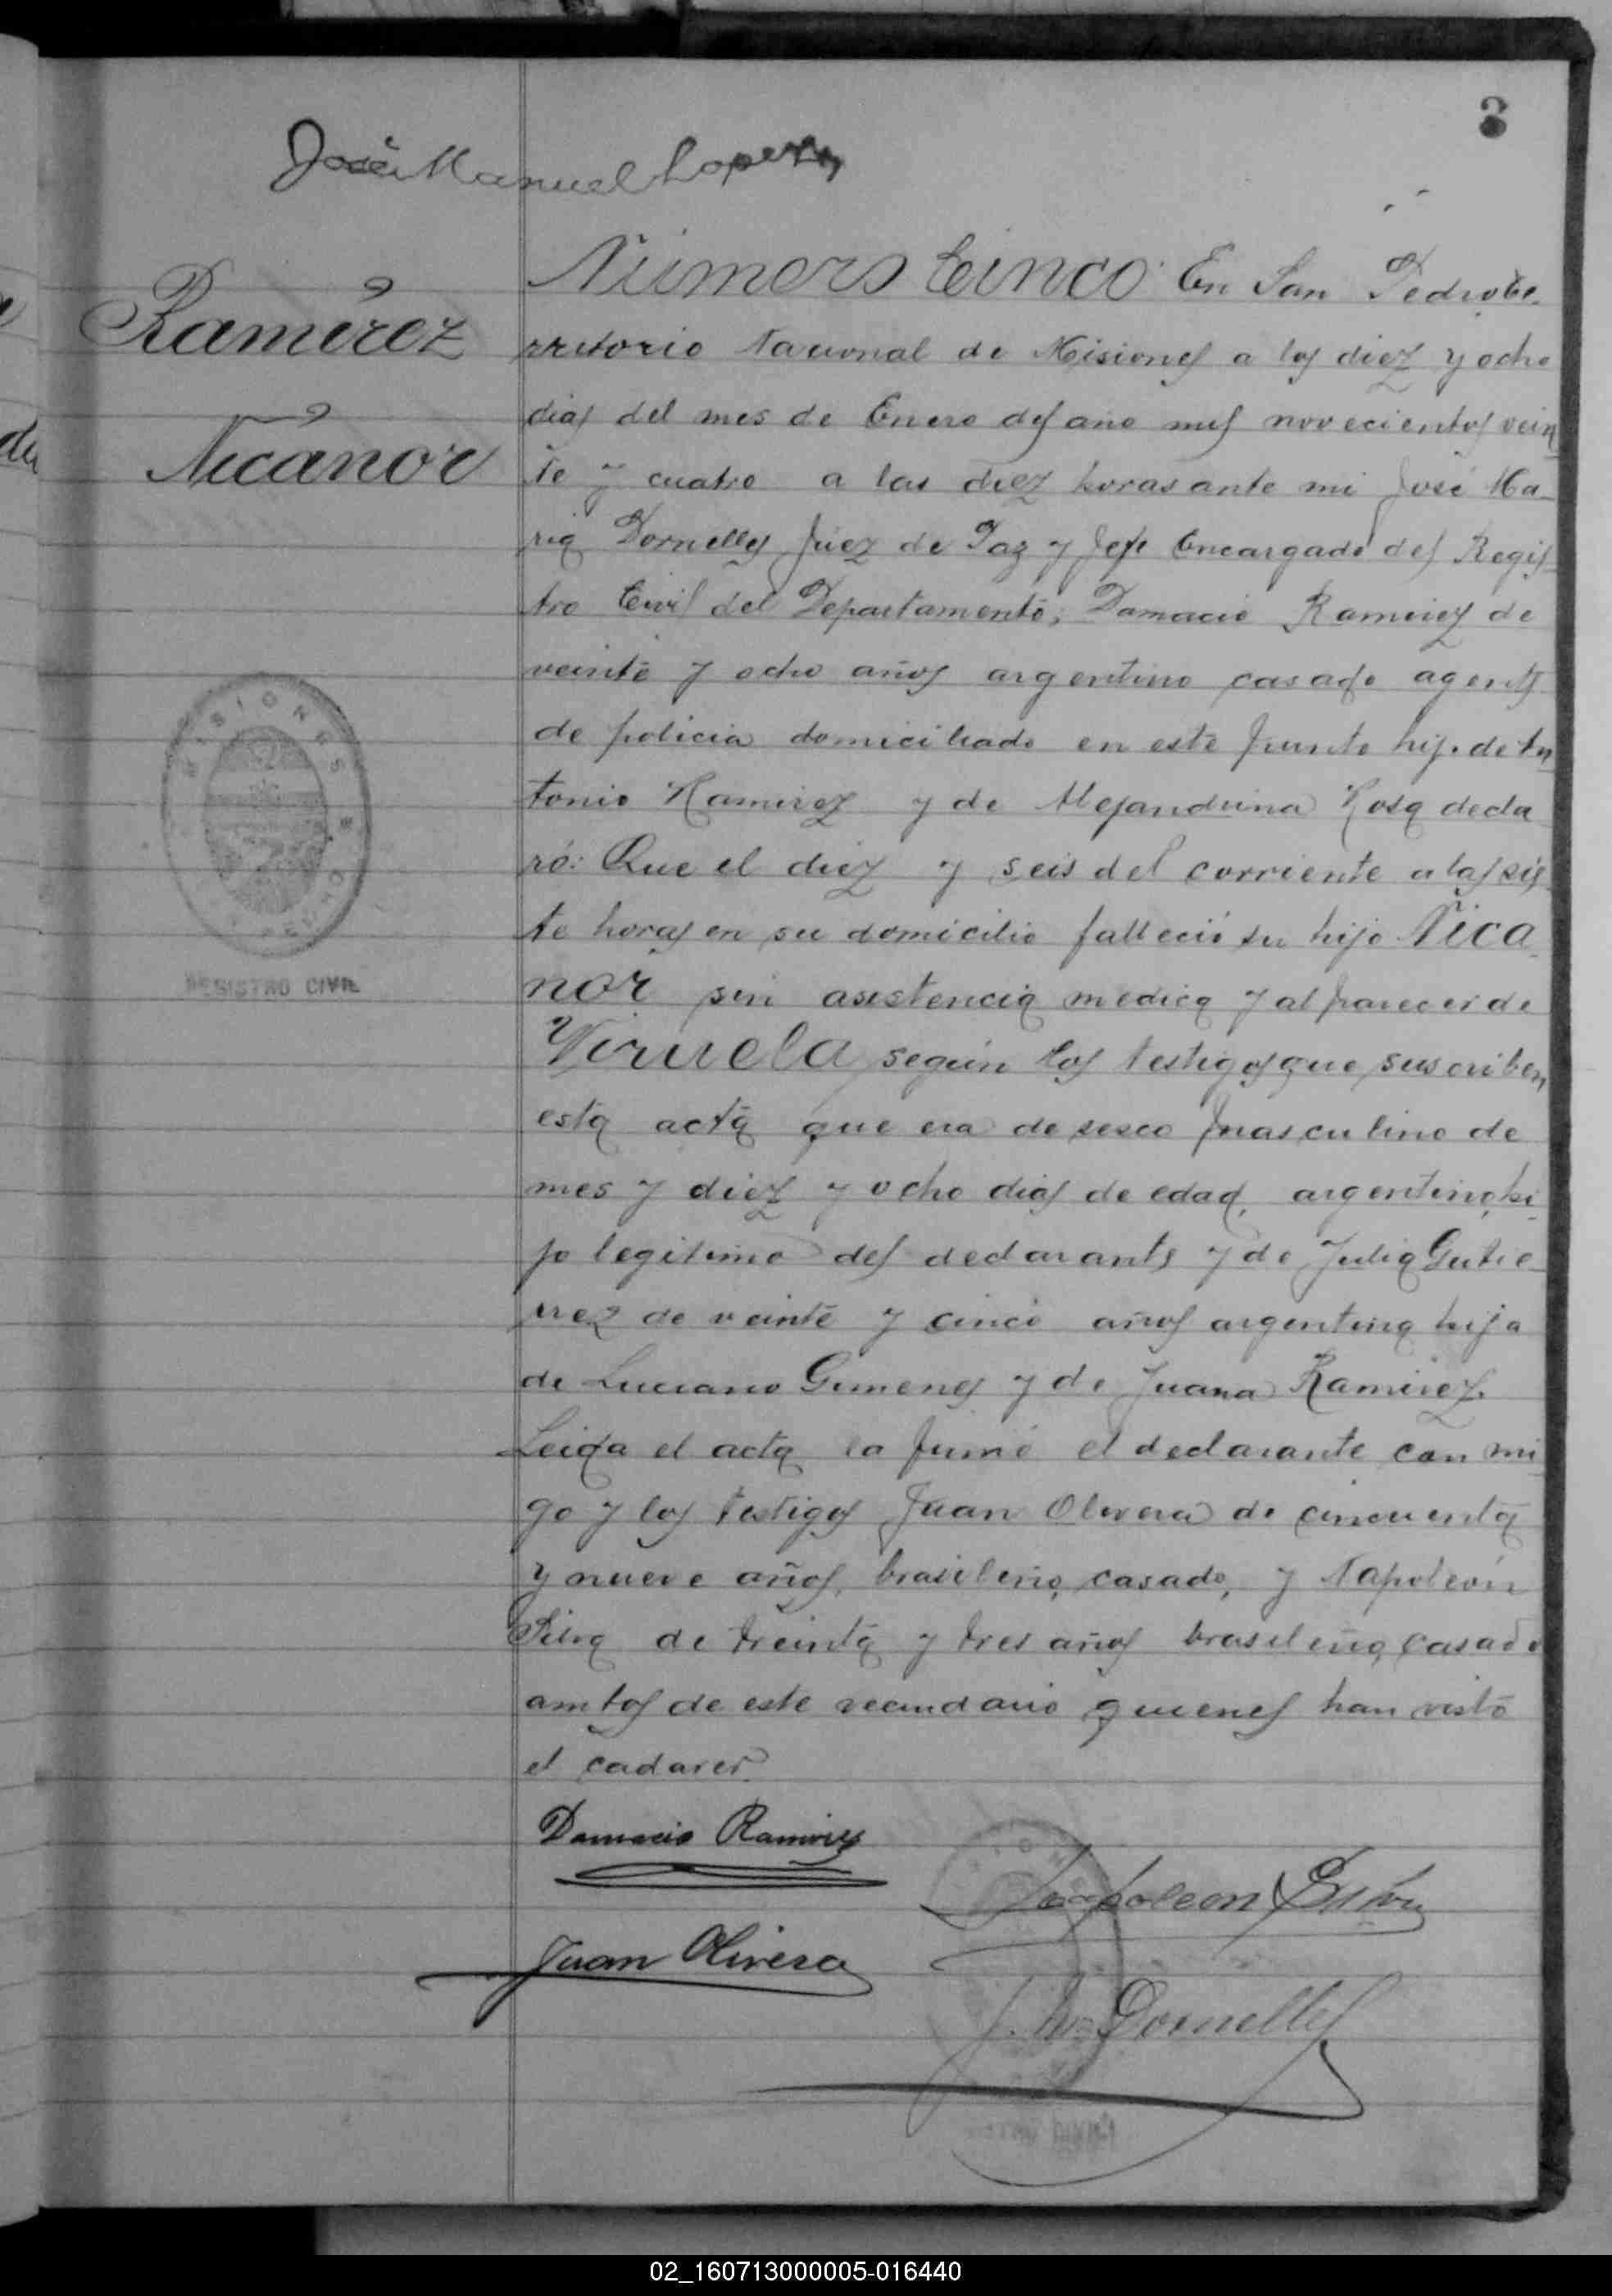 3
José Manuel Lopez
Ramírez
Nicanor
MISIONES
REGISTRO CIVIL
Número Cinco En San Pedro te-
rritorio Nacional de Misiones a los diez y ocho
dias del mes de Enero del año mil novecientos vein
te y cuatro a las diez horas ante mi José Ma-
ria Dornelles Juez de Paz y Jefe Encargado del Regis-
tro Civil del Departamento, Damacio Ramirez de
veinte y ocho años argentino casado agente
de policia domiciliado en este punto hijo de An
tonio Ramirez y de Alejandrina Rosa decla
ró: Que el diez y seis del corriente a las sie
te horas en su domicilio falleció su hijo Nica
nor sin asistencia medica y al parecer de
Viruela según los testigos que suscriben
esta acta que era de sexo masculino de
mes y diez y ocho dias de edad, argentino, hi-
jo legitimo del declarante y de Julia Gutie
rrez de veinte y cinco años argentina hija
de Luciano Gimenes y de Juana Ramirez.
Leida el acta la firmó el declarante con mi
go y los testigos Juan Olivera de cincuenta
y nueve años, brasilero, casado, y Napoleón
Silva de treinta y tres años brasileño, casado
ambos de este vecindario quienes han visto
el cadaver
Damacio Ramirez
Napoleon Silva
Juan Olivera
J. Ma Dornelles
02_160713000005-016440